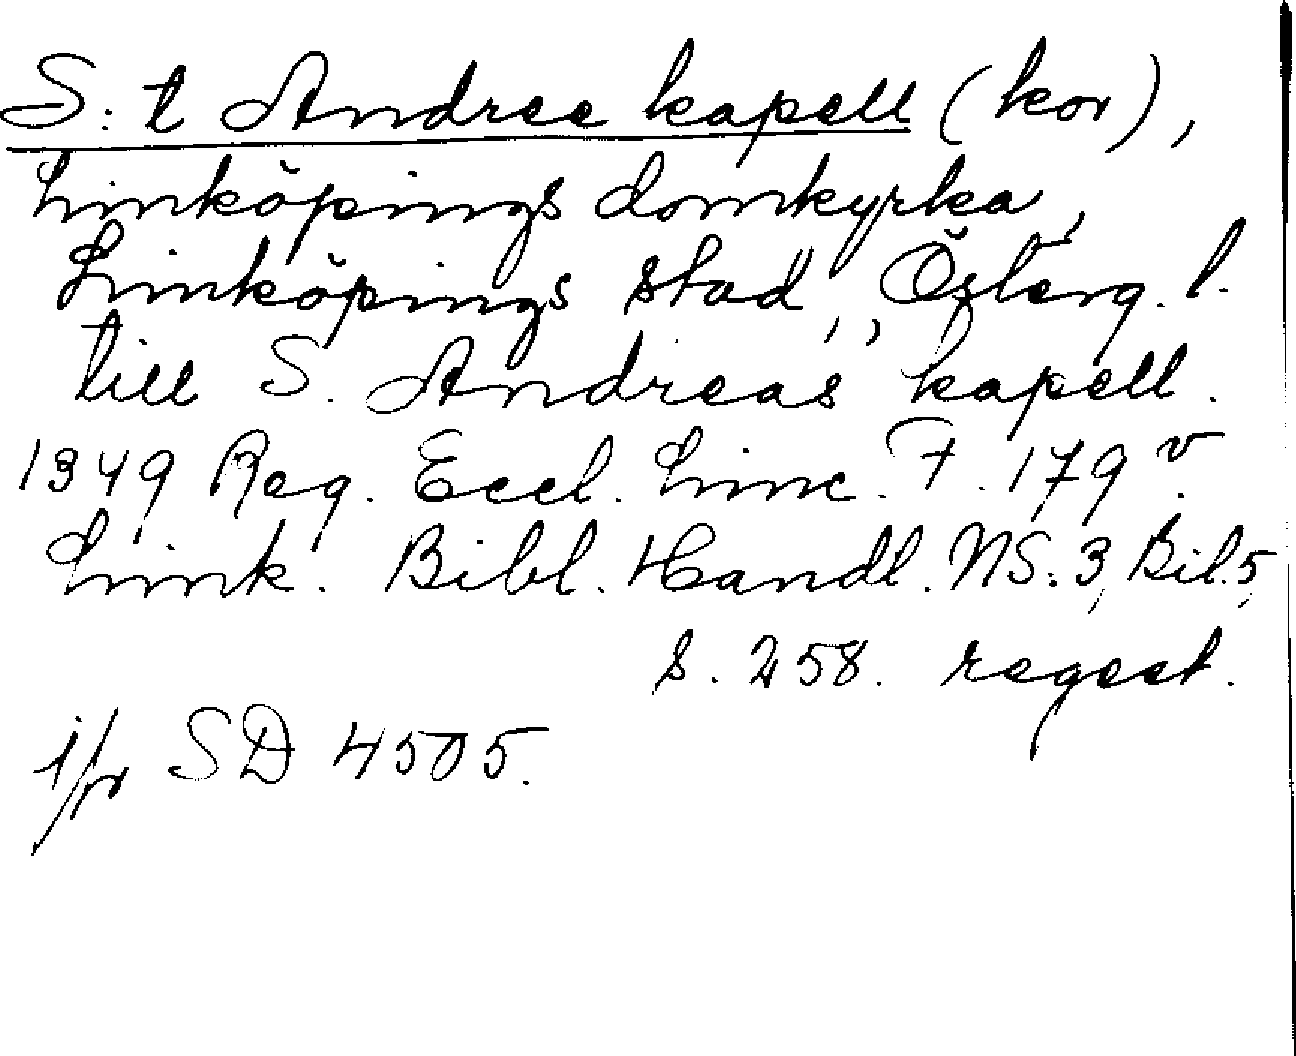 S:t Andree kapell (kor),
Linköpings domkyrka,
Linköpings stad, Österg. l.
till S. Andreas' kapell.
1349 Reg. Eccl. Linc. F. 179 v.
Link. Bibl. Handl. NS: 3, Bil. 5,
s. 258. regest.
jfr SD 4505.